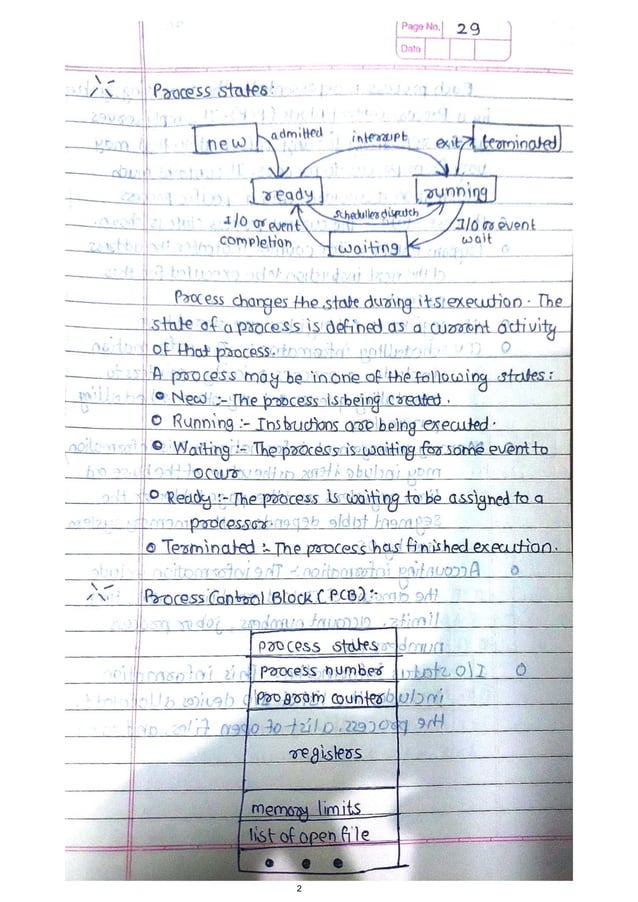 Page No. 29
Date
Process states:
new
admitted
interrupt
exit
terminated
ready
running
scheduller dispatch
I/O or event
completion
waiting
I/O or event
wait
Process changes the state during its execution. The
state of a process is defined as a current activity
of that process.
A process may be in one of the following states:
New :- The process is being created.
Running :- Instructions are being executed.
Waiting :- The process is waiting for some event to
occur
Ready :- The process is waiting to be assigned to a
processor.
Terminated :- The process has finished execution.
Process Control Block (PCB):-
process states
process number
program counter
registers
memory limits
list of open file
2